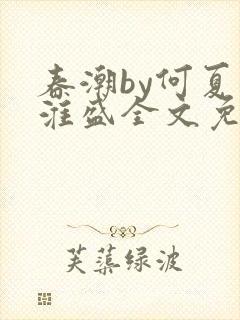 春潮by何夏
淮盛全文免
芙蕖绿波